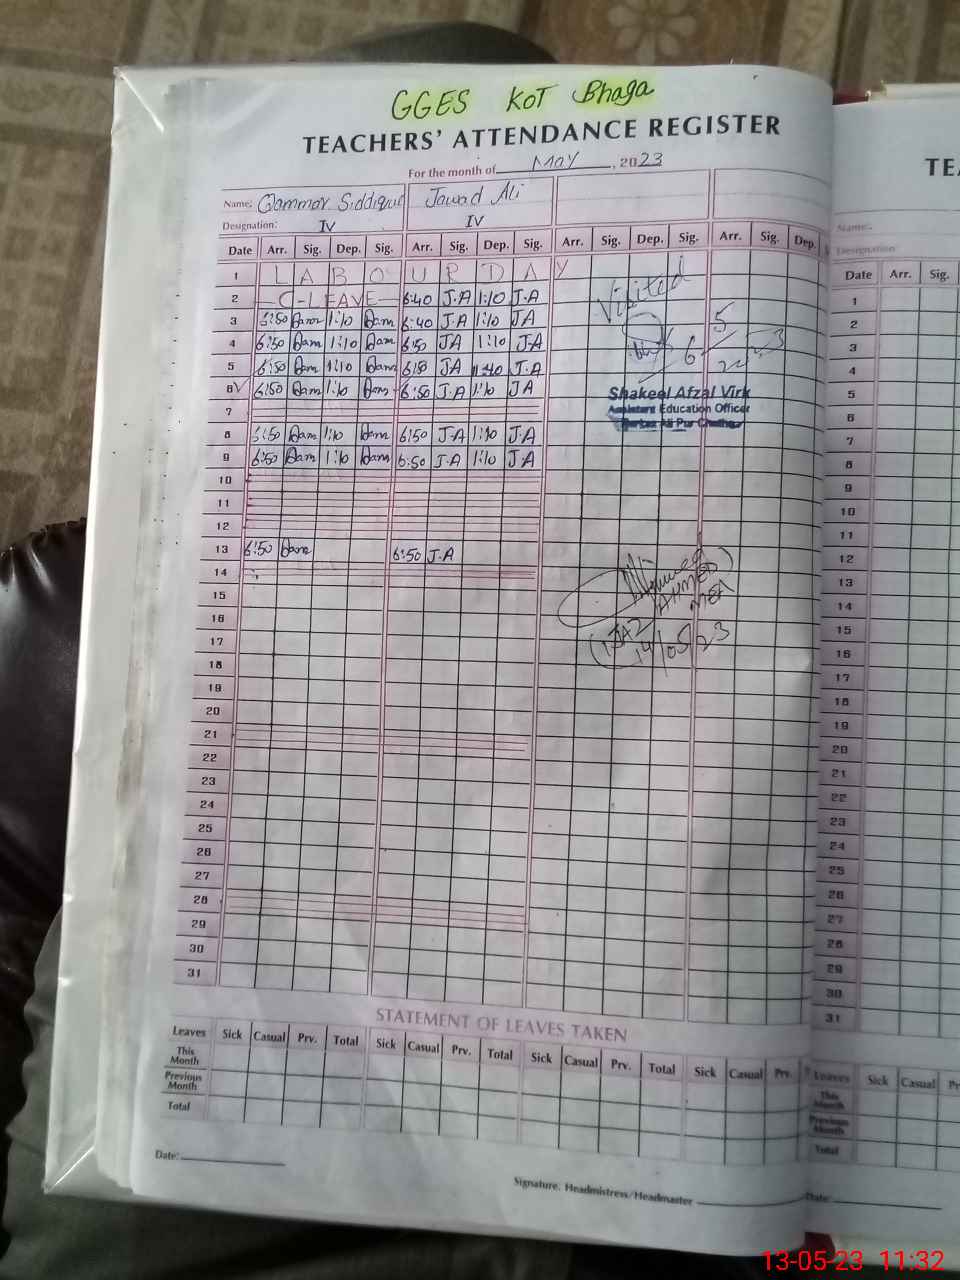 GGES KOT Bhaga
TEACHERS' ATTENDANCE REGISTER
For the month of May, 2023
Name: Qammar Siddiqui Jawad Ali
Designation: IV IV
Date Arr. Sig. Dep. Sig. Arr. Sig. Dep. Sig. Arr. Sig. Dep. Sig. Arr. Sig. Dep.
1 L A B O U R D A Y
2 C-LEAVE 6:40 J.A 1:10 J.A
3 6:50 Qam 1:10 Qam 6:40 J.A 1:10 JA
4 6:50 Qam 1:10 Qam 6:50 JA 1:10 J.A
5 6:50 Qam 1:10 Qam 6:50 JA J.A
6 6:50 Qam 1:10 Qam 6:50 J.A 1:10 JA
7
8 6:50 Qam 1:10 Qam 6:50 J.A 1:10 J.A
9 6:50 Qam 1:10 Qam 6:50 J.A 1:10 J.A
10
11
12
13 6:50 Qam 6:50 J.A
14
15
16
17
18
19
20
21
22
23
24
25
26
27
28
29
30
31
Visited
6/5
Shakeel Afzal Virk
Assistant Education Officer
Markaz Ali Pur Chattha
AHMED
MEA
(IJAZ
14/05/23
STATEMENT OF LEAVES TAKEN
Leaves Sick Casual Prv. Total Sick Casual Prv. Total Sick Casual Prv. Total Sick Casual Prv.
This Month
Previous Month
Total
Date:
Signature. Headmistress/Headmaster
TEA
Name:
Designation:
Date Arr. Sig.
1
2
3
4
5
6
7
8
9
10
11
12
13
14
15
16
17
18
19
20
21
22
23
24
25
26
27
28
29
30
31
Leaves Sick Casual Pr
This Month
Previous Month
Total
Date:
13-05-23 11:32